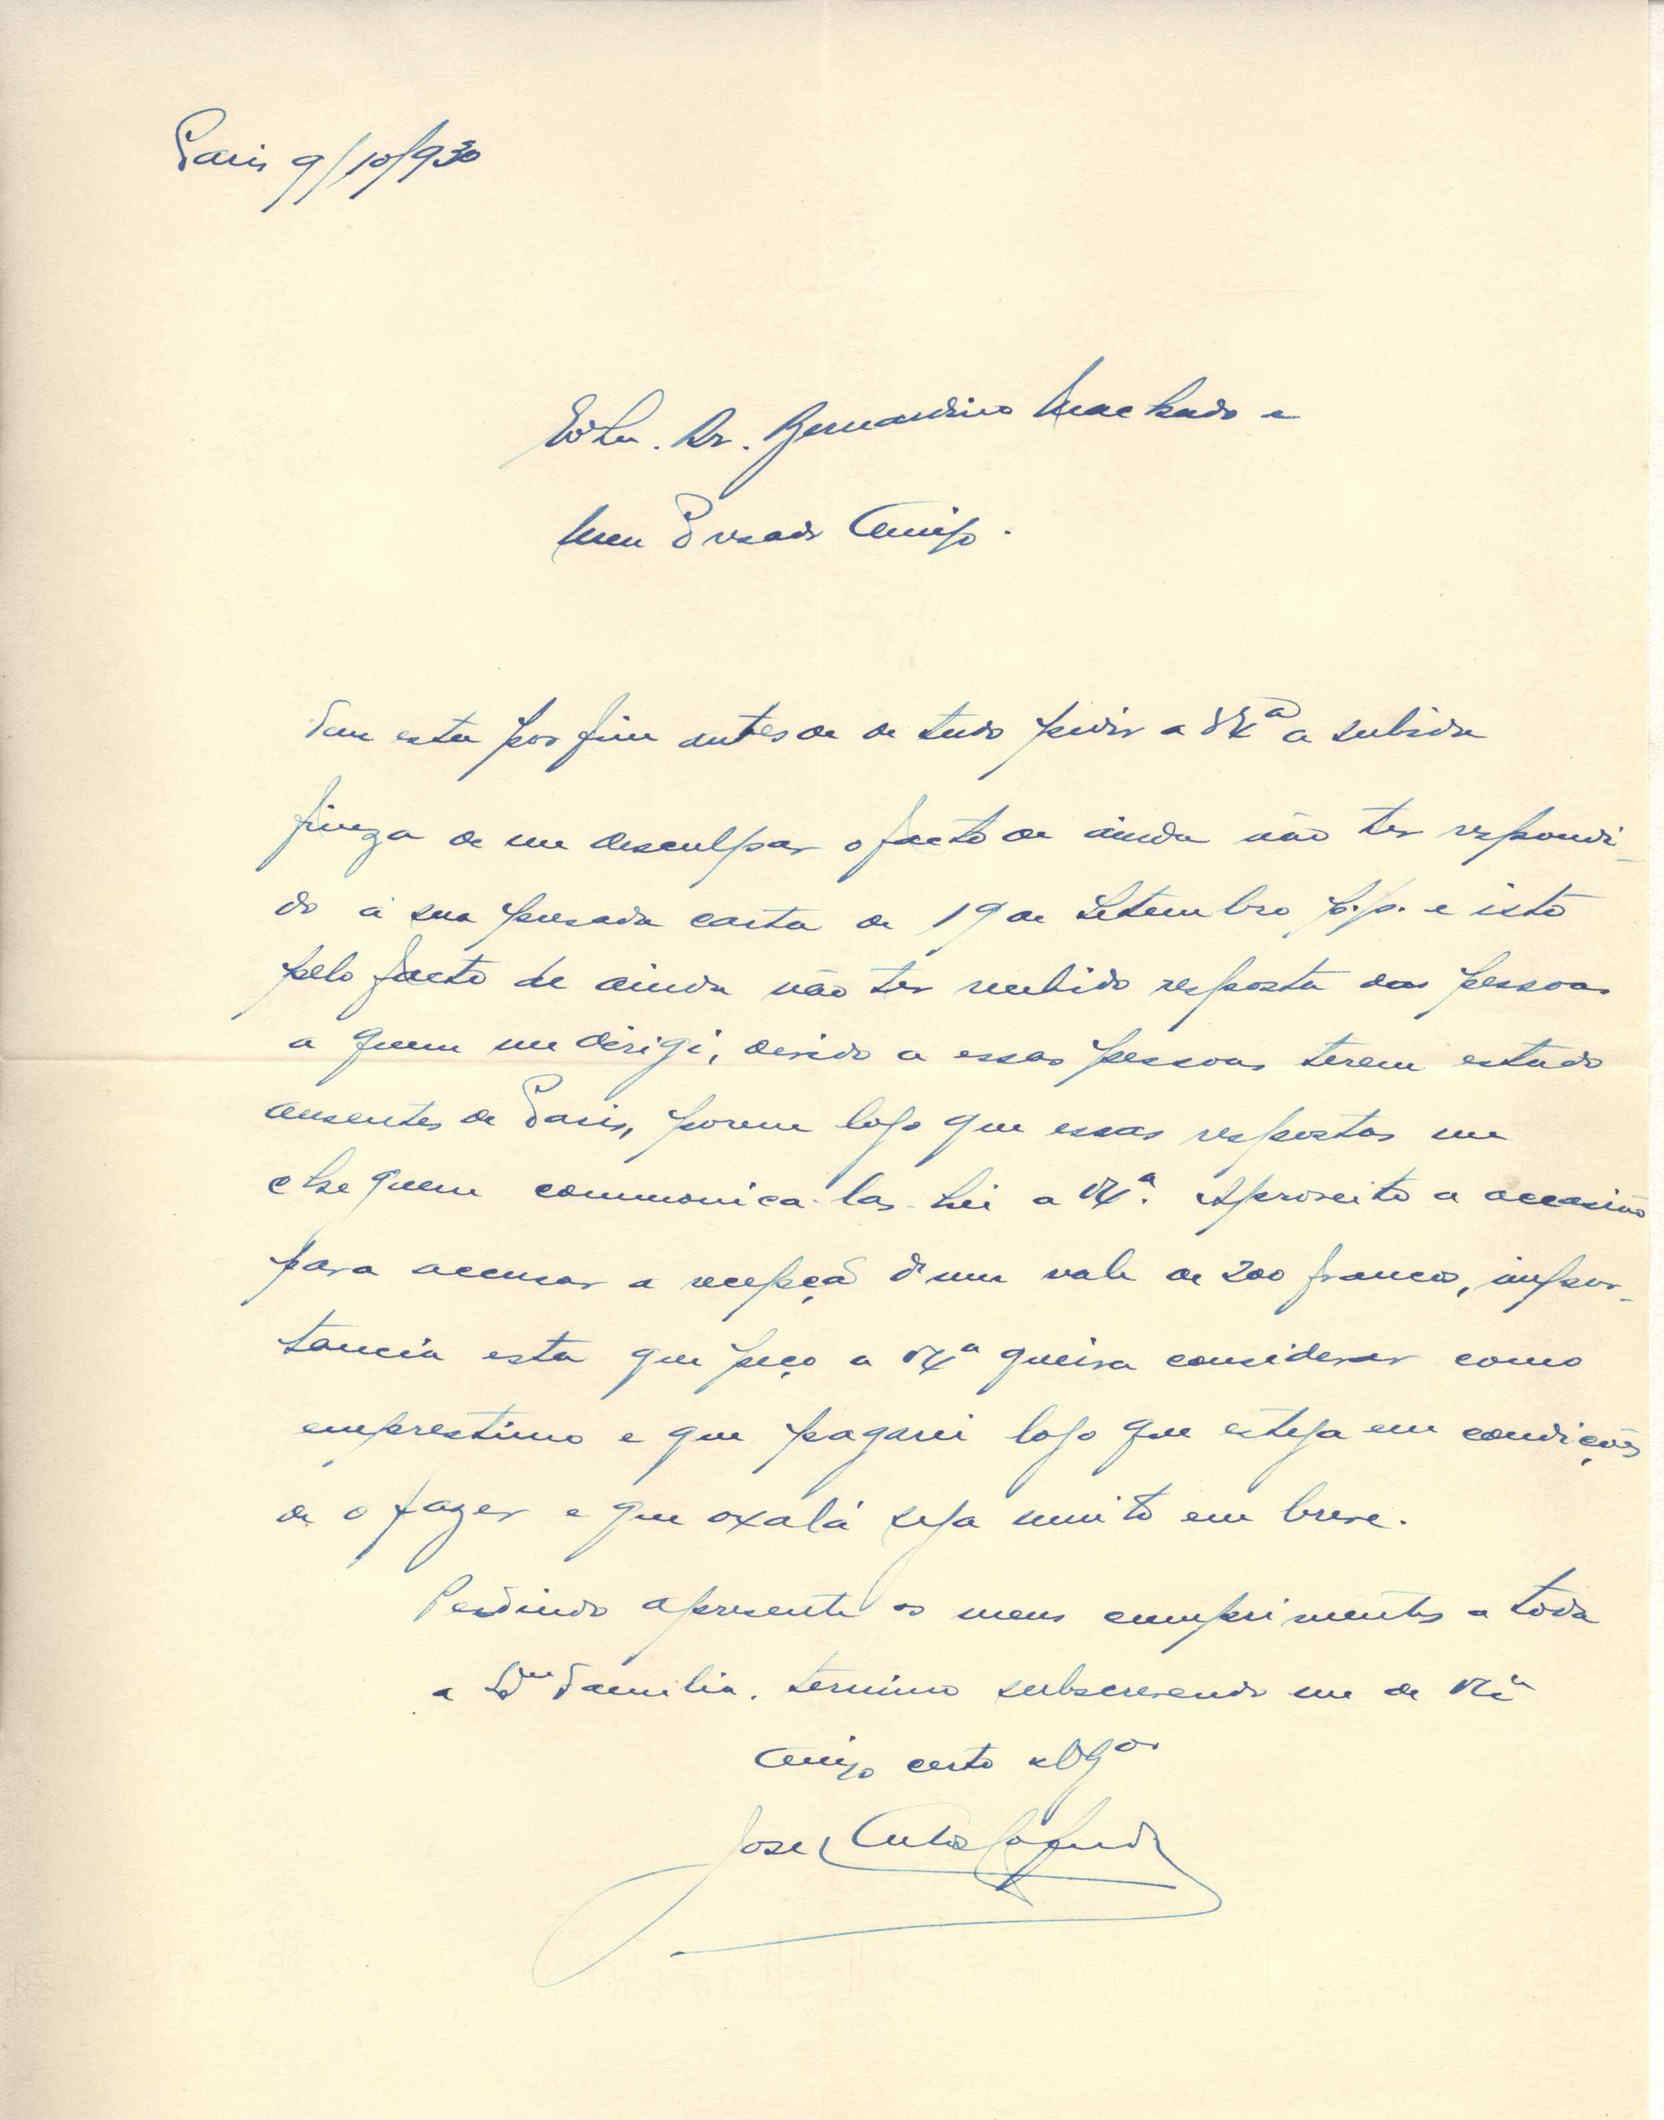 Paris 9/10/930
Exmo. Dr. Bernardino Machado e
Meu Presado Amigo.
Tem esta por fim antes de de tudo pedir a V Exª a subida
fineza de me desculpar o facto de ainda não ter respondi-
do á sua presada carta de 19 de Setembro p.p. e isto
pelo facto de ainda não ter recebido resposta das pessoas
a quem me dirigi, devido a essas pessoas terem estado
ausentes de Paris, porem logo que essas respostas me
cheguem communica-las-hei a VExª. Aproveito a occasião
para accusar a recepção d'um vale de 200 francos, impor-
tancia esta que peço a VExª queira considerar como
emprestimo e que pagarei logo que esteja em condições
de o fazer e que oxalá seja muito em breve.
Pedindo apresente os meus cumprimentos a toda
a Familia. termino subscrevendo me de VExª
Amigo certo e Obgdo
José